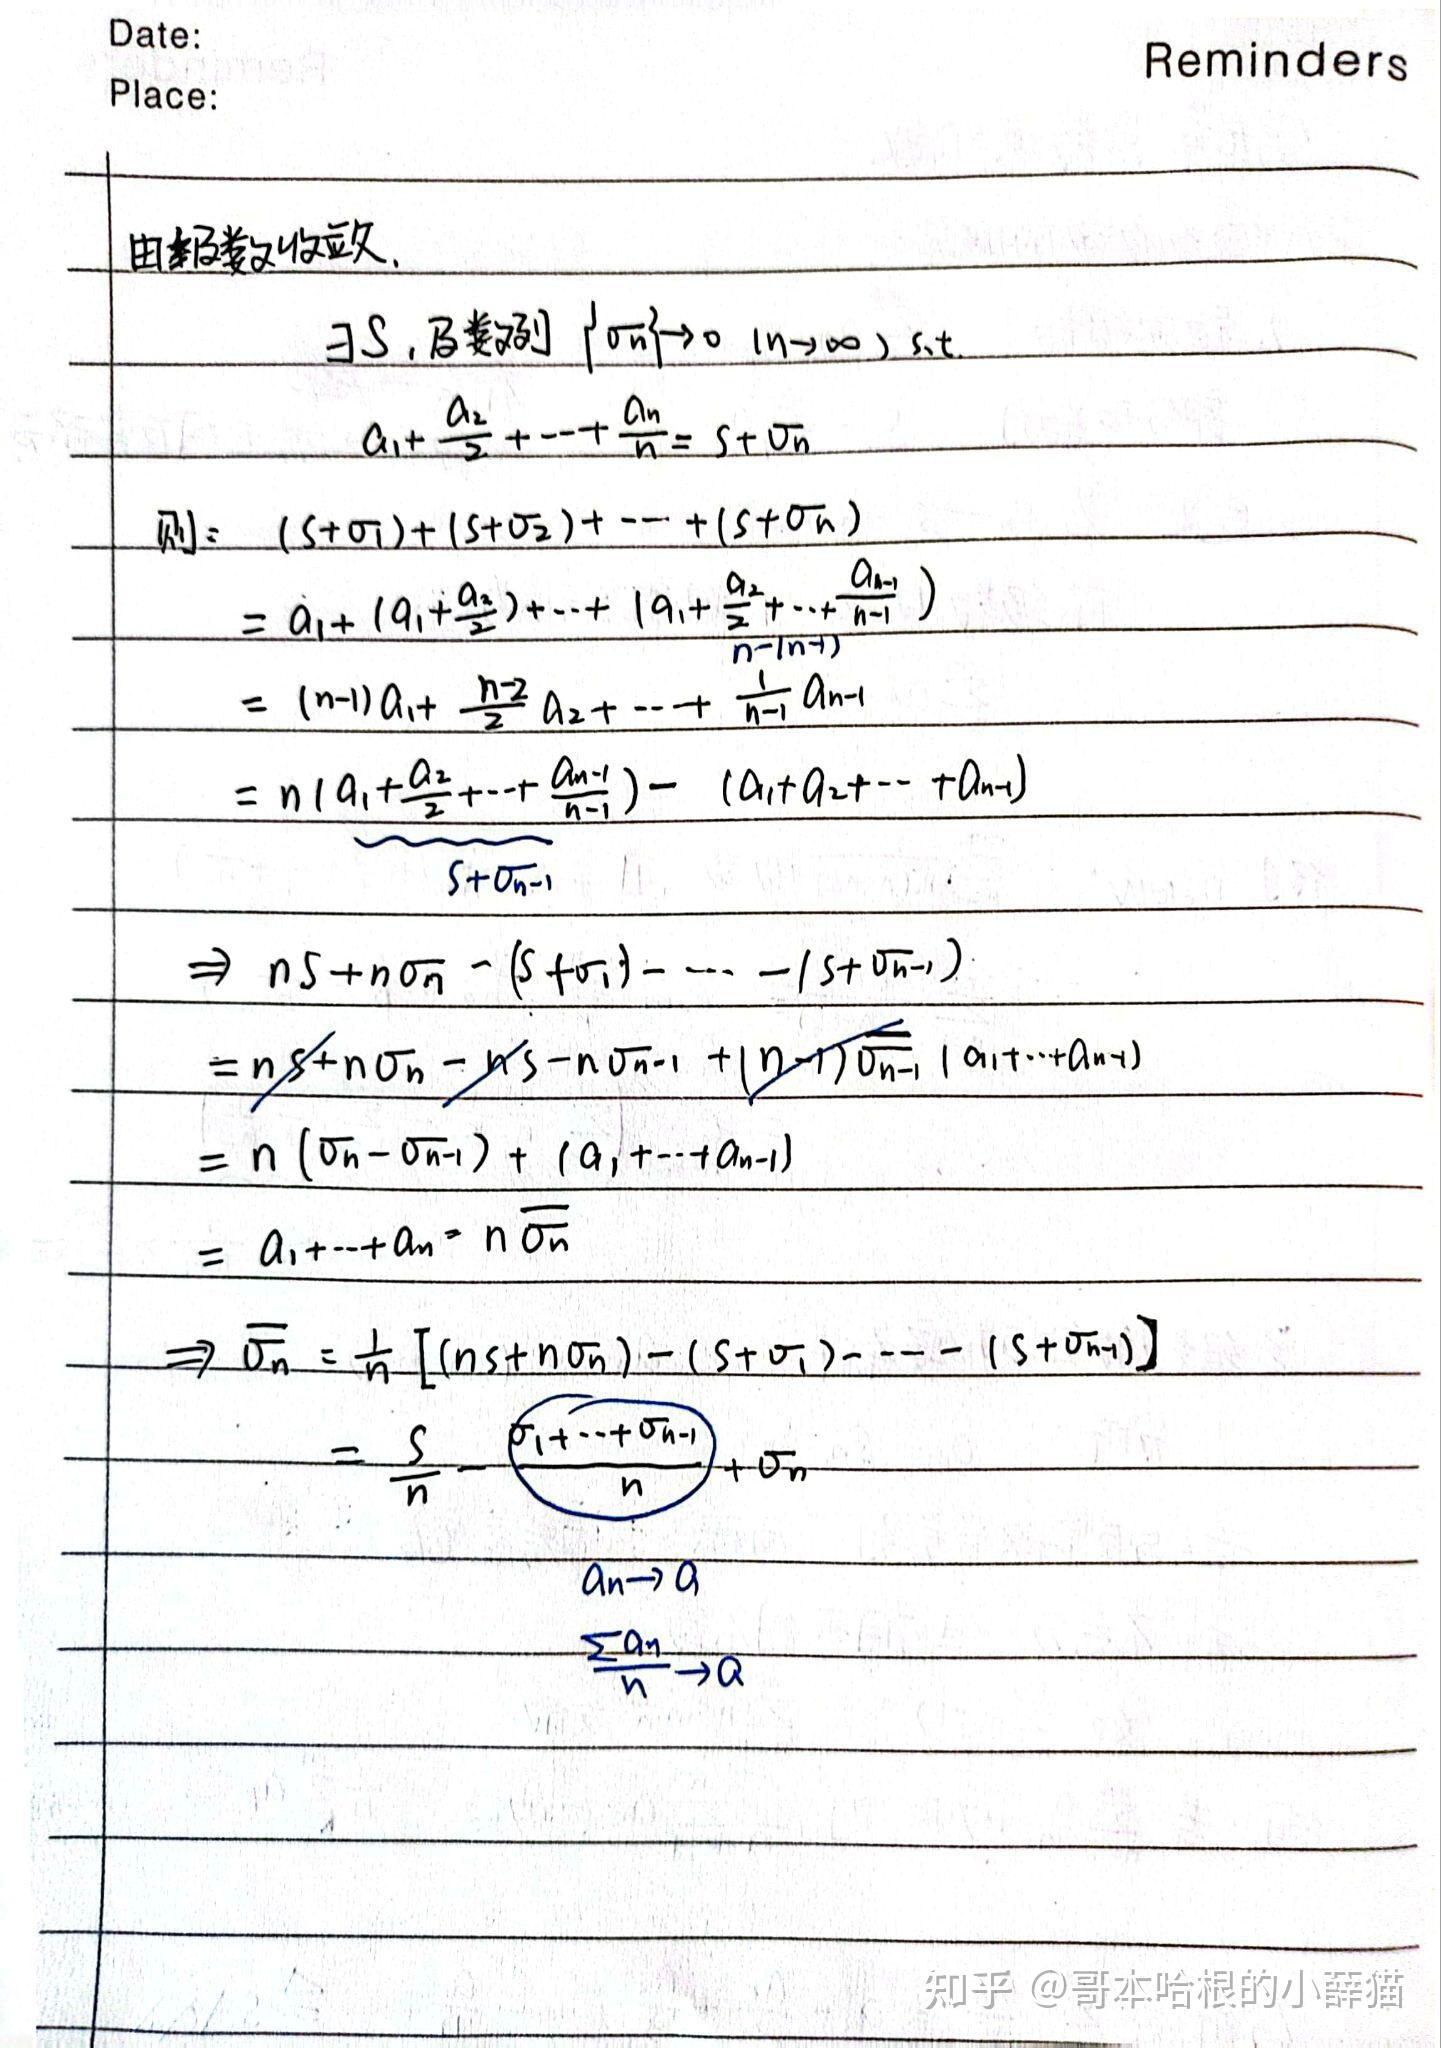 Date:
Reminders
Place:
由级数收敛.
∃S, 及数列 {σn}→0 (n→∞) s.t.
a₁+a₂/2+---+an/n = S+σn
则: (S+σ₁)+(S+σ₂)+---+(S+σn)
= a₁+(a₁+a₂/2)+---+(a₁+a₂/2+---+an-1/n-1)
n-(n-1)
= (n-1)a₁+ n-2/2 a₂+---+ 1/n-1 an-1
= n(a₁+a₂/2+---+an-1/n-1) - (a₁+a₂+---+an-1)
S+σn-1
⇒ nS+nσn-(S+σ₁)-----(S+σn-1)
= nS+nσn-nS-nσn-1+(n-1)σ̿n-1 (a₁+---+an-1)
= n(σn-σn-1)+(a₁+---+an-1)
= a₁+---+an = nσ̿n
⇒ σ̿n = 1/n [(nS+nσn)-(S+σ₁)-----(S+σn-1)]
= S/n - σ₁+---+σn-1/n + σn
an→a
Σan/n→a
知乎 @哥本哈根的小薛猫